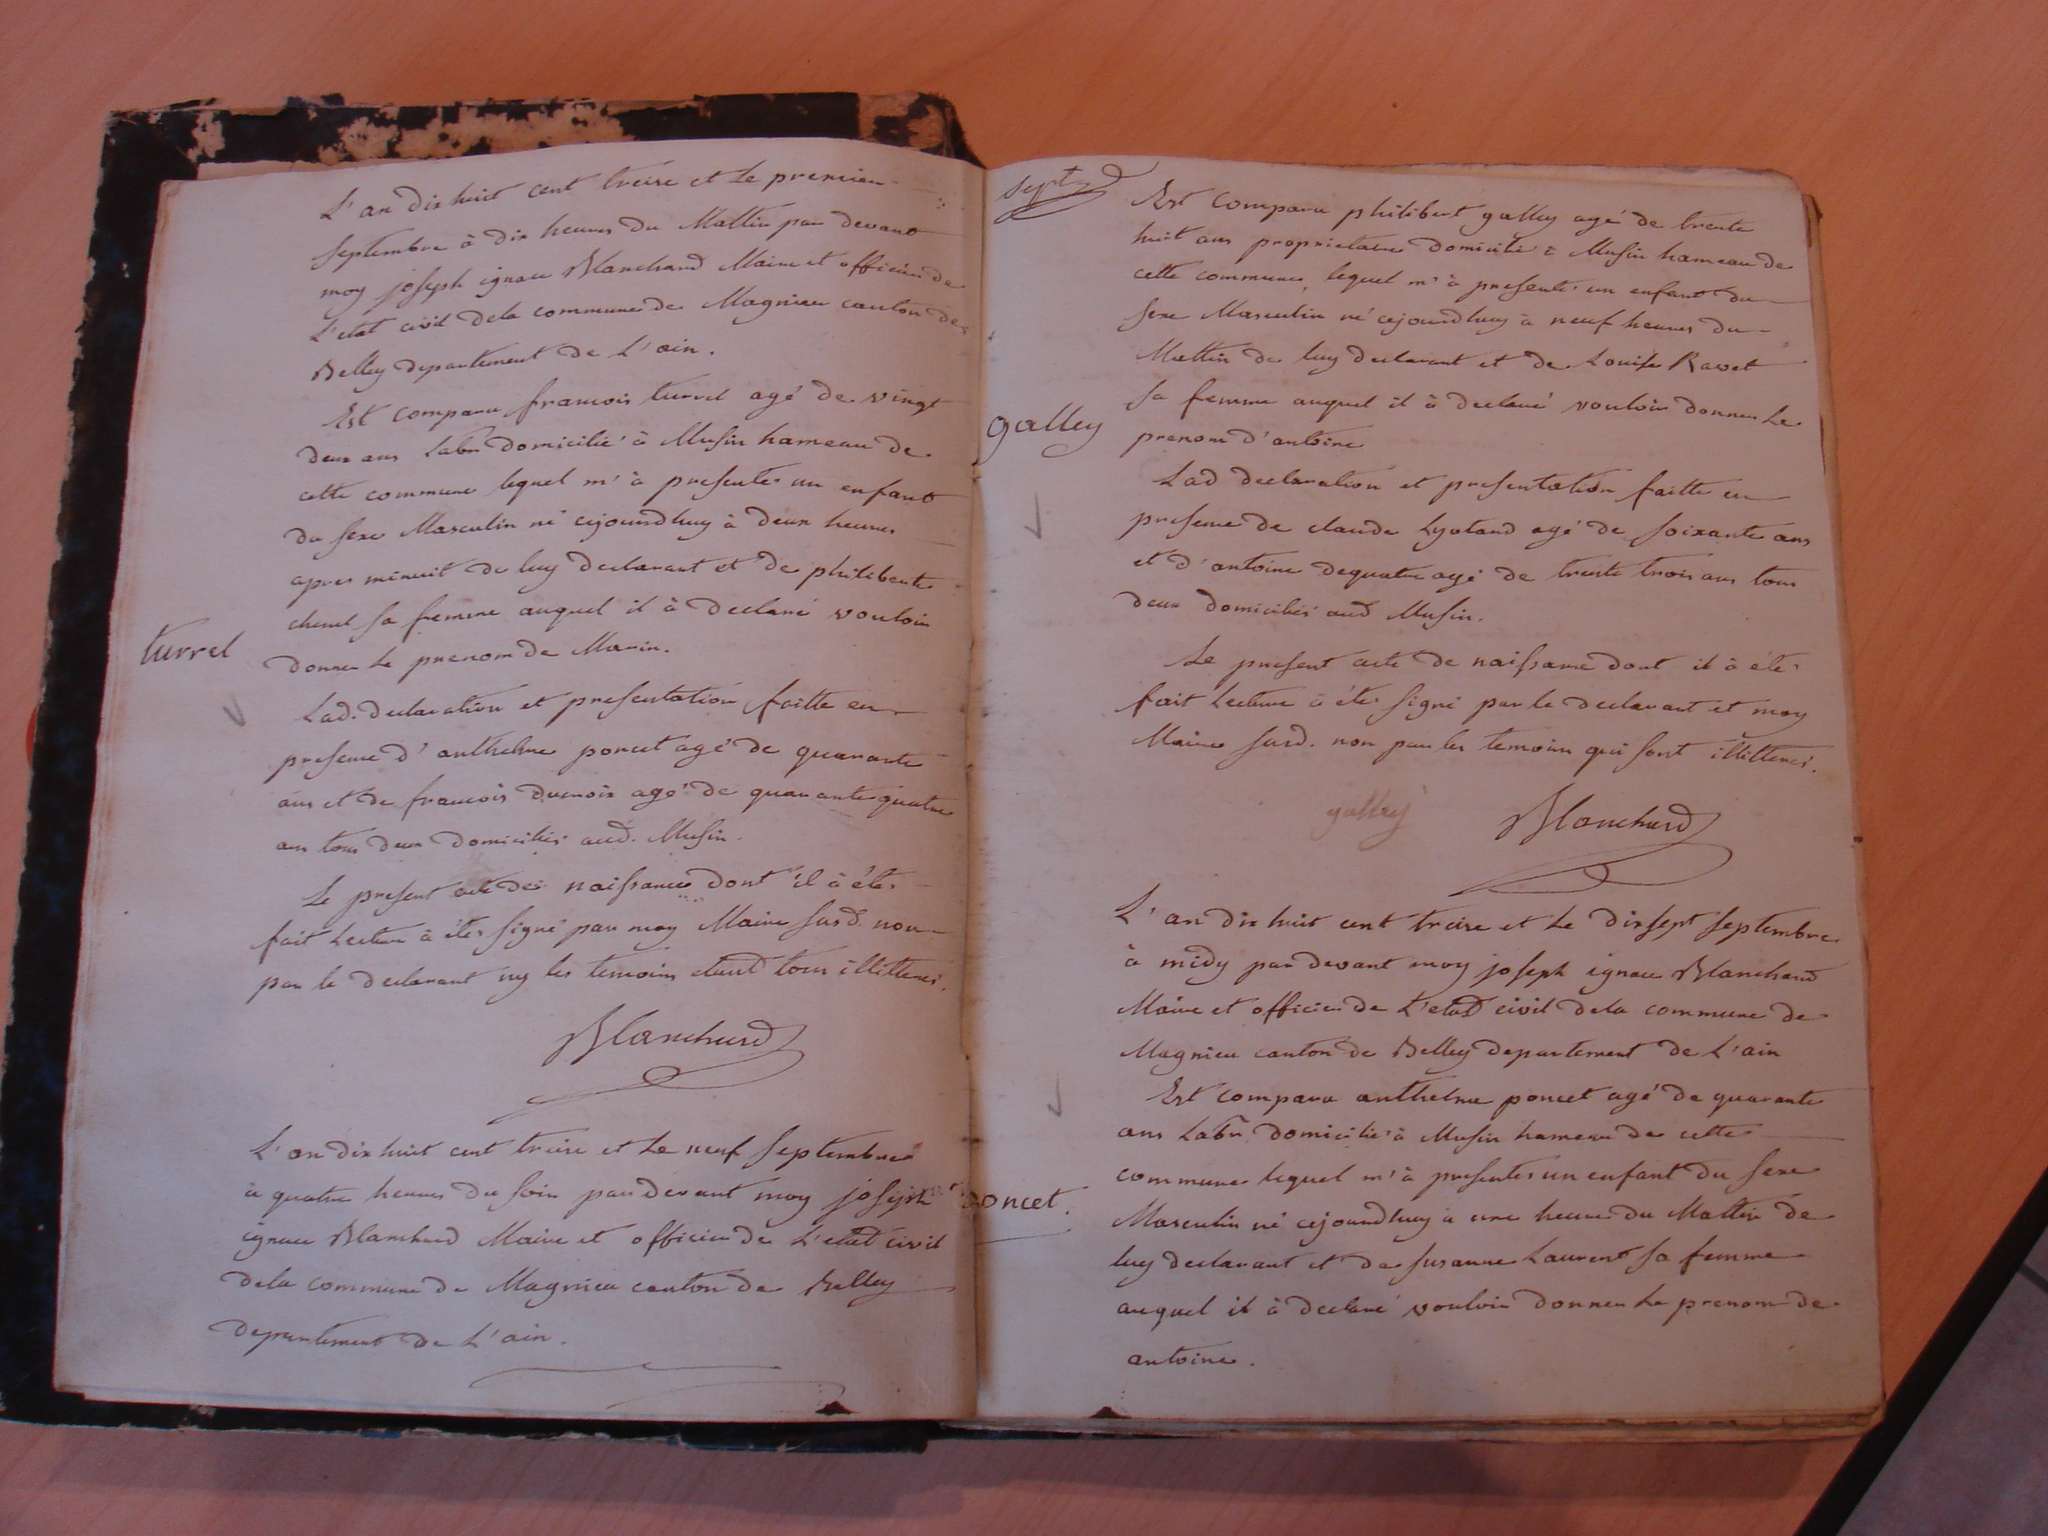 L'an dix huit cent treize et le premier
septembre à dix heures du Mattin par devant
moy joseph ignace Blanchard Maire et officier de
L'etat civil dela commune de Magnieu canton de
Belley departement de L'ain.
Est comparu francois turrel agé de vingt
deux ans Labr domicilié à Musin hameau de
cette commune lequel m'à presentés un enfant
du sexe Masculin né cejourdhuy à deux heures
apres minuit de luy declarant et de philiberte
sa femme auquel il à declaré vouloir
turrel
donner le prenom de Marin.
Lad. declaration et presentation faitte en
presence d'anthelme poncet agé de quarante
ans et de francois agé de quarante quatre
ans tous deux domiciliés aud. Musin.
Le present acte de naissance dont il à étés
fait Lecture à étés signé par moy Maire susd. non
par le declarant ny les temoins etant tous illitterés.
Blanchard
L'an dix huit cent treize et le neuf septembre
à quatre heures du soir par devant moy joseph
ignace Blanchard Maire et officier de L'etat civil
dela commune de Magnieu canton de Belley
departement de L'ain.
sept
Est comparu philibert galley agé de trente
huit ans proprietaire domicilié à Musin hameau de
cette commune, lequel m'à presentés un enfant du
sexe Masculin né cejourdhuy à neuf heures du
Mattin de luy declarant et de Louise Ravet
sa femme auquel il à declaré vouloir donner le
galley
prenom d'antoine
Lad declaration et presentation faitte en
presence de claude agé de soixante ans
et d'antoine dequatre agé de trente trois ans tous
deux domiciliés aud Musin.
Le present acte de naissance dont il à étés
fait Lecture à étés signé par le declarant et moy
Maire susd. non par les temoins qui sont illitterés.
galley Blanchard
L'an dix huit cent treize et le dixsept septembre
à midy par devant moy joseph ignace Blanchard
Maire et officier de L'etat civil dela commune de
Magnieu canton de Belley departement de L'ain
Est comparu anthelme poncet agé de quarante
ans Labr domicilié à Musin hameau de cette
commune lequel m'à presentés un enfant du sexe
poncet.
Masculin né cejourdhuy à une heure du Mattin de
luy declarant et de susanne Laurent sa femme
auquel il à declaré vouloir donner le prenom de
antoine.